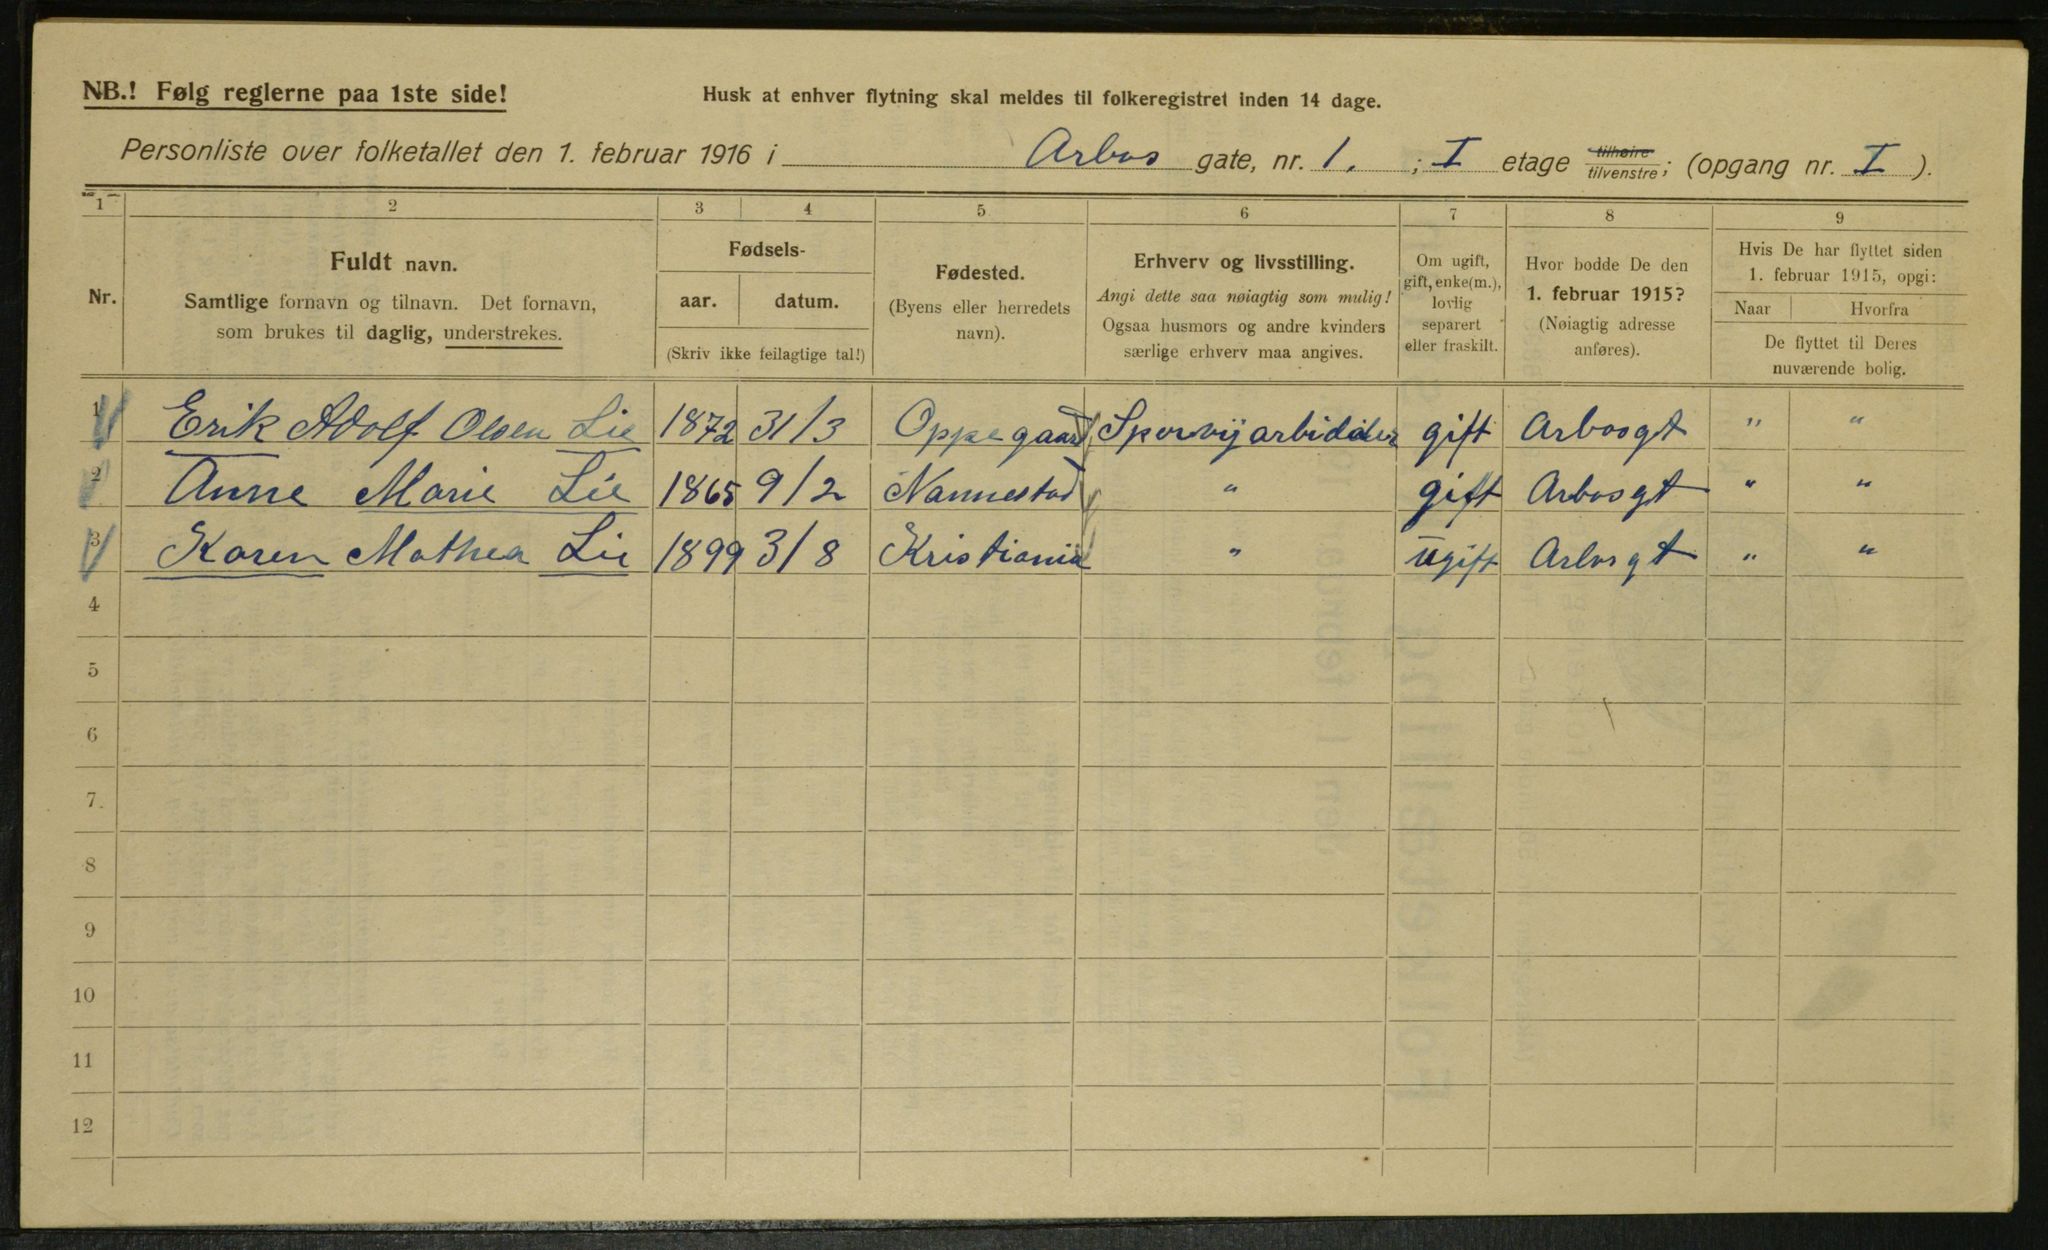 NB.! Følg reglerne paa 1ste side!
Husk at enhver flytning skal meldes til folkeregistret inden 14 dage.
Personliste over folketallet den 1. februar 1916 i Arbos gate, nr. 1. ; I etage tilhøire/tilvenstre; (opgang nr. I ).
1 2 3 4 5 6 7 8 9
Nr.
Fuldt navn.
Samtlige fornavn og tilnavn. Det fornavn,
som brukes til daglig, understrekes.
Fødsels-
aar. datum.
(Skriv ikke feilagtige tal!)
Fødested.
(Byens eller herredets
navn).
Erhverv og livsstilling.
Angi dette saa nøiagtig som mulig!
Ogsaa husmors og andre kvinders
særlige erhverv maa angives.
Om ugift,
gift, enke(m.),
lovlig
separert
eller fraskilt.
Hvor bodde De den
1. februar 1915?
(Nøiagtig adresse
anføres).
Hvis De har flyttet siden
1. februar 1915, opgi:
Naar Hvorfra
De flyttet til Deres
nuværende bolig.
1 Erik Adolf Olsen Lie 1872 31/3 Oppegaard Sporvijarbidder gift Arbosgt " "
2 Anne Marie Lie 1865 9/2 Nannestad " gift Arbosgt " "
3 Karen Mathea Lie 1899 3/8 Kristiania " ugift Arbosgt " "
4
5
6
7
8
9
10
11
12